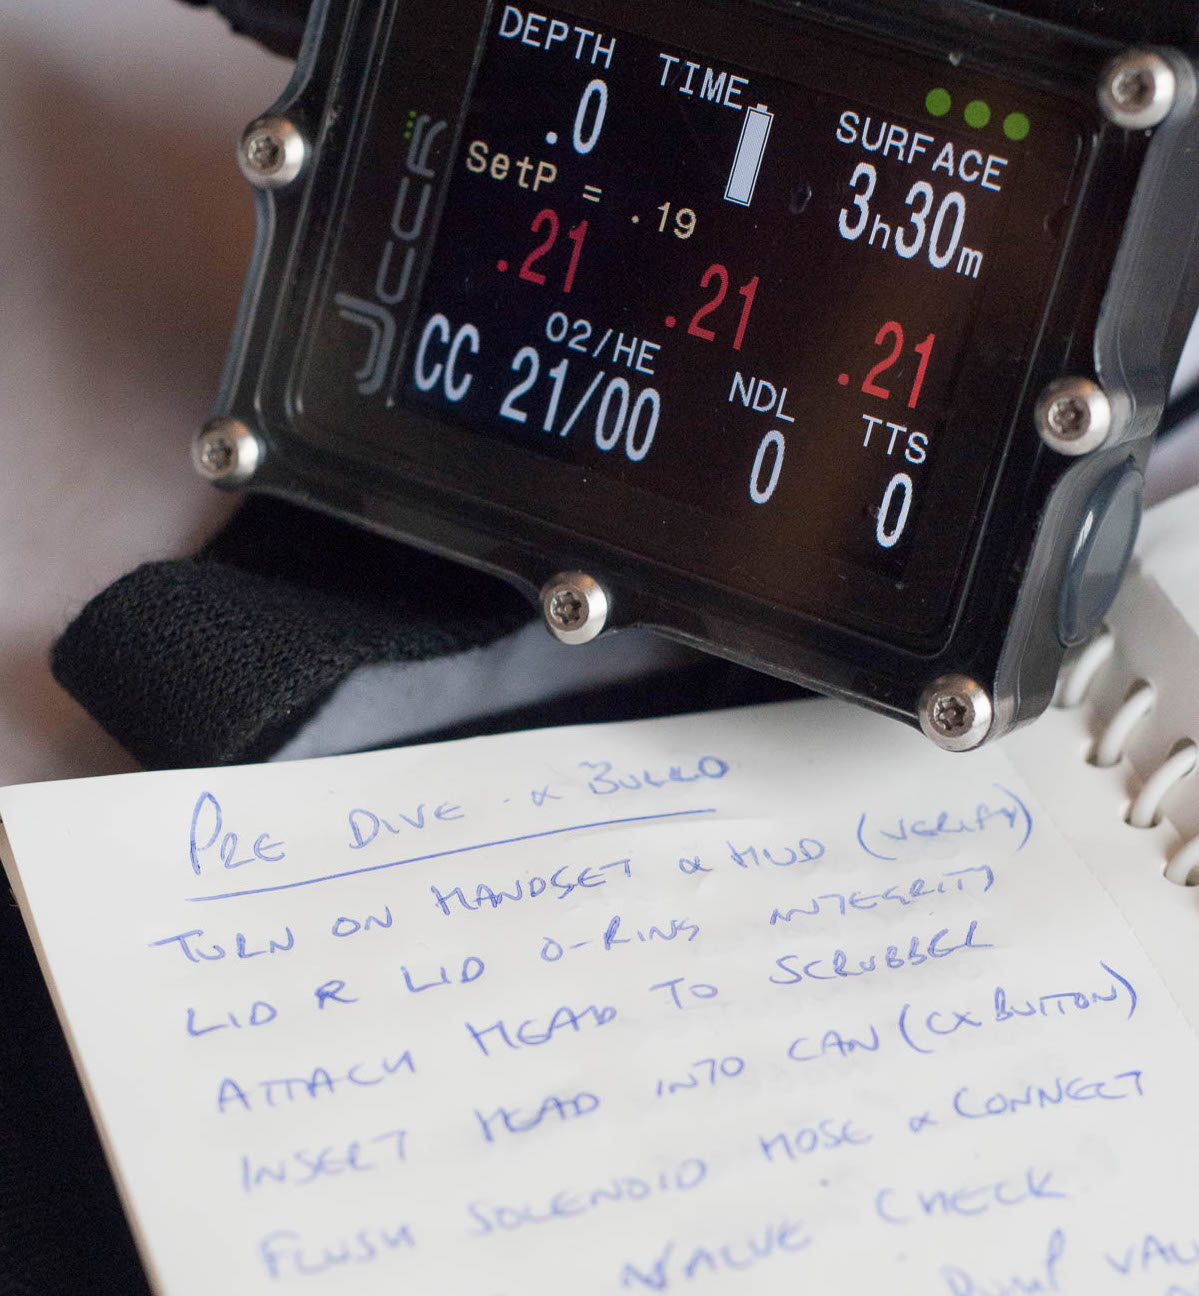 DEPTH TIME SURFACE
.0 3h30m
SetP = .19
.21 .21 .21
O2/HE NDL TTS
CC 21/00 0 0
JJ CCR
PRE DIVE & BUILD
TURN ON HANDSET & HUD (VERIFY)
LID & LID O-RING INTEGRITY
ATTACH HEAD TO SCRUBBER
INSERT HEAD INTO CAN (CX BUTTON)
FLUSH SOLENOID HOSE & CONNECT
VALVE CHECK
DUMP